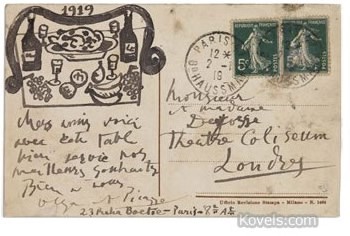 1919
PARIS
12
2
19
Bd HAUSSM
5c
POSTES
Chers amis voici
avec cette table
bien servie nos
meilleurs souhaits
Bien a vous
Olga et Picasso
23 rue La Boetie - Paris - 8e
Monsieur
et madame
Derosse
Theatre Coliseum
Londres
Ufficio Revisione Stampa - Milano - N.
© Kovels.com